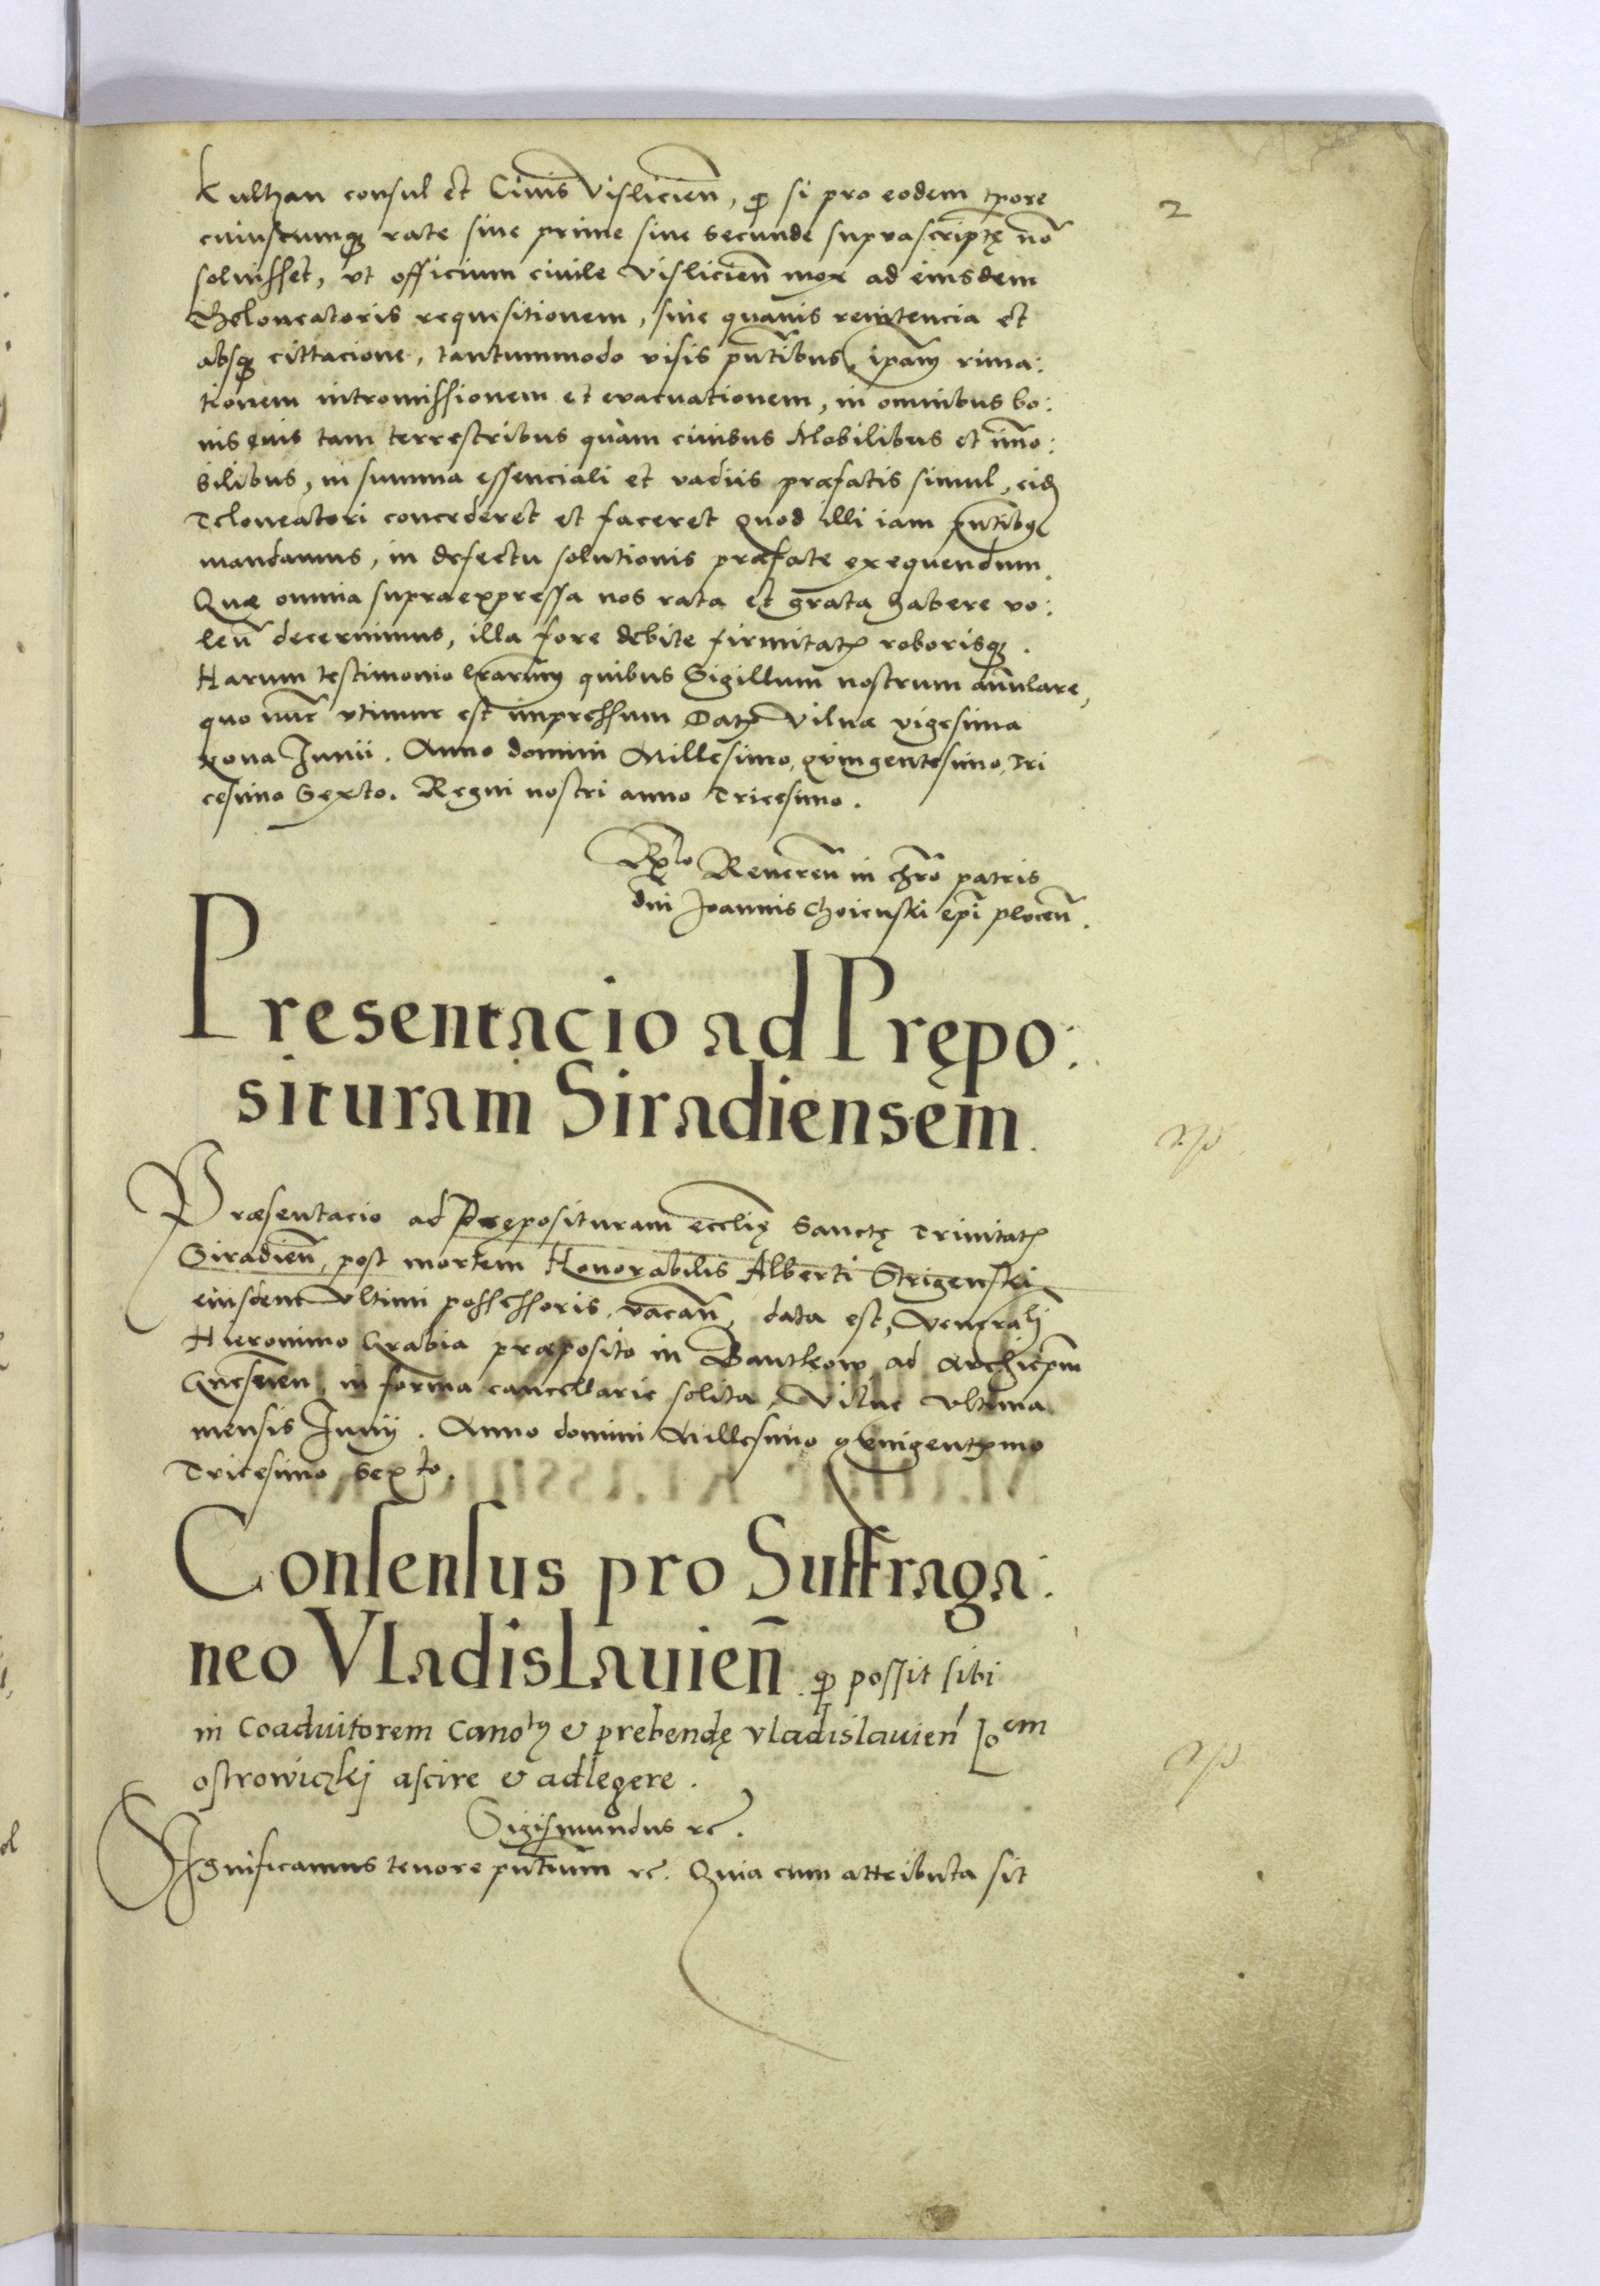 2
Kulhan consul et Civis Vislicien̄, qꝫ si pro eodem tꝑore
cuiuscumqꝫ rate siue prime siue secunde suprascriptę nō
soluisset, vt officium ciuile Vislicien̄ mox ad eiusdem
Theloneatoris requisitionem, sine quauis renitencia et
absqꝫ cittacione, tantummodo visis pn̄tibus, ipam rima:
tionem intromissionem et evacuationem, in omnibus bo:
nis eius tam terrestribus quam ciuibus Mobilibus et immo:
bilibus, in summa essenciali et vadiis præfatis simul, eidꝫ
Teloneatori concederet et faceret Quod illi iam pn̄tibꝫ
mandamus, in defectu solutionis præfate exequendum.
Quæ omnia supraexpressa nos rata et grata habere vo:
len̄ decernimus, illa fore debite firmitatꝭ roborisqꝫ.
Harum testimonio lr̄arum quibus Sigillum nostrum annulare,
quo nūc vtimur est impressum Datꝭ Vilnæ vigesima
nona Junii. Anno domini Millesimo, quingentesimo, Tri
cesimo Sexto. Regni nostri anno Tricesimo.
Rlo Reueren̄ in chrō patris
dn̄i Joannis Choienski epī plocen̄.
Presentacio ad Prępo:
situram Siradiensem.
Præsentacio ad Pręposituram eccl̄ię Sanctę Trinitatꝭ
Siradien̄, post mortem Honorabilis Alberti Strigenski
eiusdem Vltimi possessoris, vacan̄, data est, Venerali
Hieronimo Grabia præposito in Bantkow ad Archiepm̄
Gnesnen̄, in forma cancellarie solita, Vilne Vltima
mensis Junij. Anno domini Millesimo quingentꝭmo
Tricesimo Sexto.
Consensus pro Suffraga:
neo Vladislauien̄ qꝫ possit sibi
in Coadiutorem Cano & prebendę vladislauien̄ Joem
ostrowiczkj ascire & adlegere.
Sigismundus rc̄.
Significamus tenore pn̄tium rc̄. Quia cum attributa sit